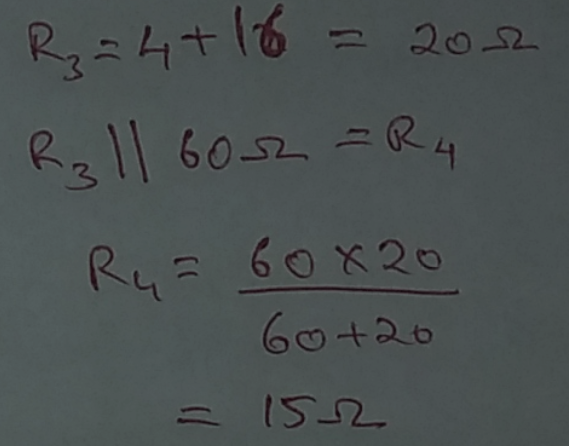 R₃ = 4 + 16 = 20 Ω
R₃ || 60 Ω = R₄
R₄ = 60 × 20
60 + 20
= 15 Ω